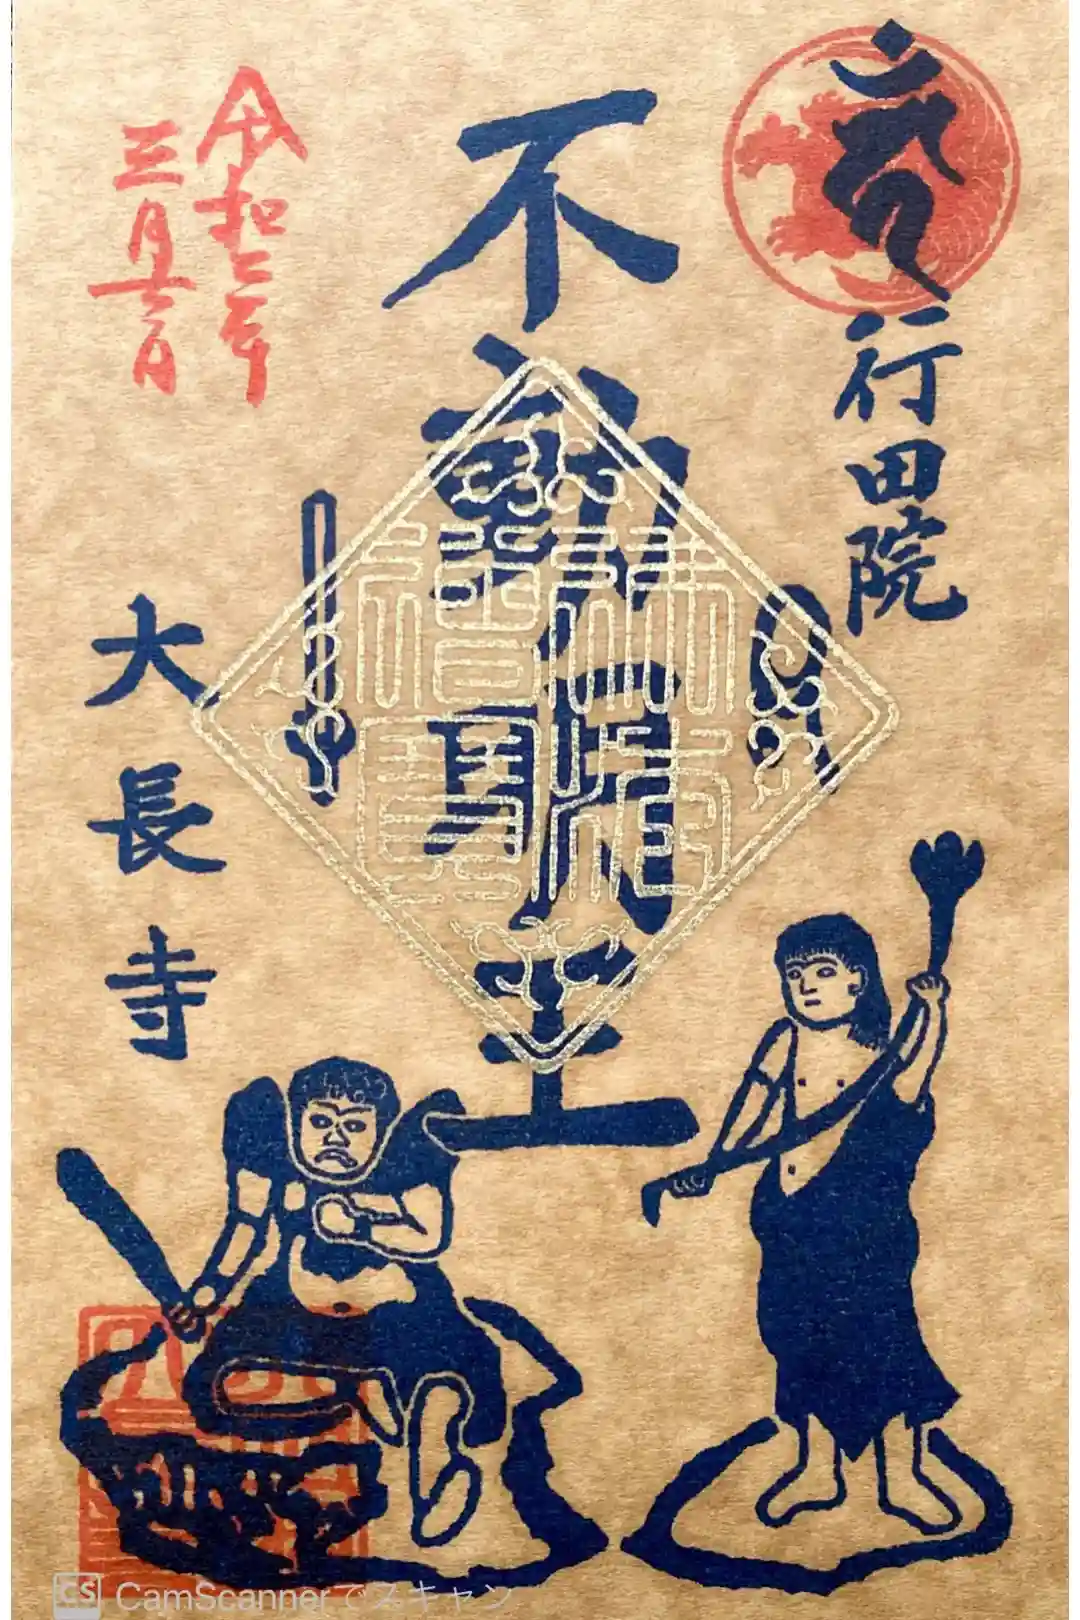 行田院
不動明王
佛法
僧寶
大長寺
令和二年
三月
CS CamScannerでスキャン